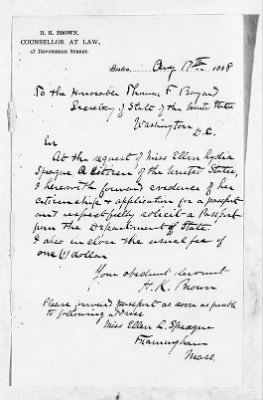 H. K. BROWN,
COUNSELLOR AT LAW,
47 DEVONSHIRE STREET.
Boston, Aug 17th 1888
To the Honorable Thomas F Bayard
Secretary of State of the United States
Washington
D.C.
Sir
At the request of Miss Ellen Lydia
Sprague a Citizen of the United States,
I herewith forward evidence of her
citizenship & application for a passport
and respectfully solicit a Passport
from the Department of State.
I also inclose the usual fee of
one (1) dollar
Your obedient servant
H. K. Brown
Please forward passport as soon as possible
to following address
Miss Ellen L. Sprague
Framingham
Mass.